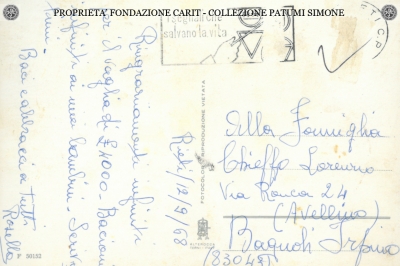 PROPRIETA' FONDAZIONE CARIT - COLLEZIONE PATUMI SIMONE
salvano la vita
Ringraziamenti infiniti
per il vaglia di £ 4000 - Bacioni
infiniti ai miei bambini - Scrivi
Baci e abbracci a tutti
Rosella
Rieti, 12/9/68
FOTOCOLOR RIPRODUZIONE VIETATA
Alla Famiglia
Chieffo Lorenzo
Via Ronca 24
(Avellino)
Bagnoli Irpino
(83043)